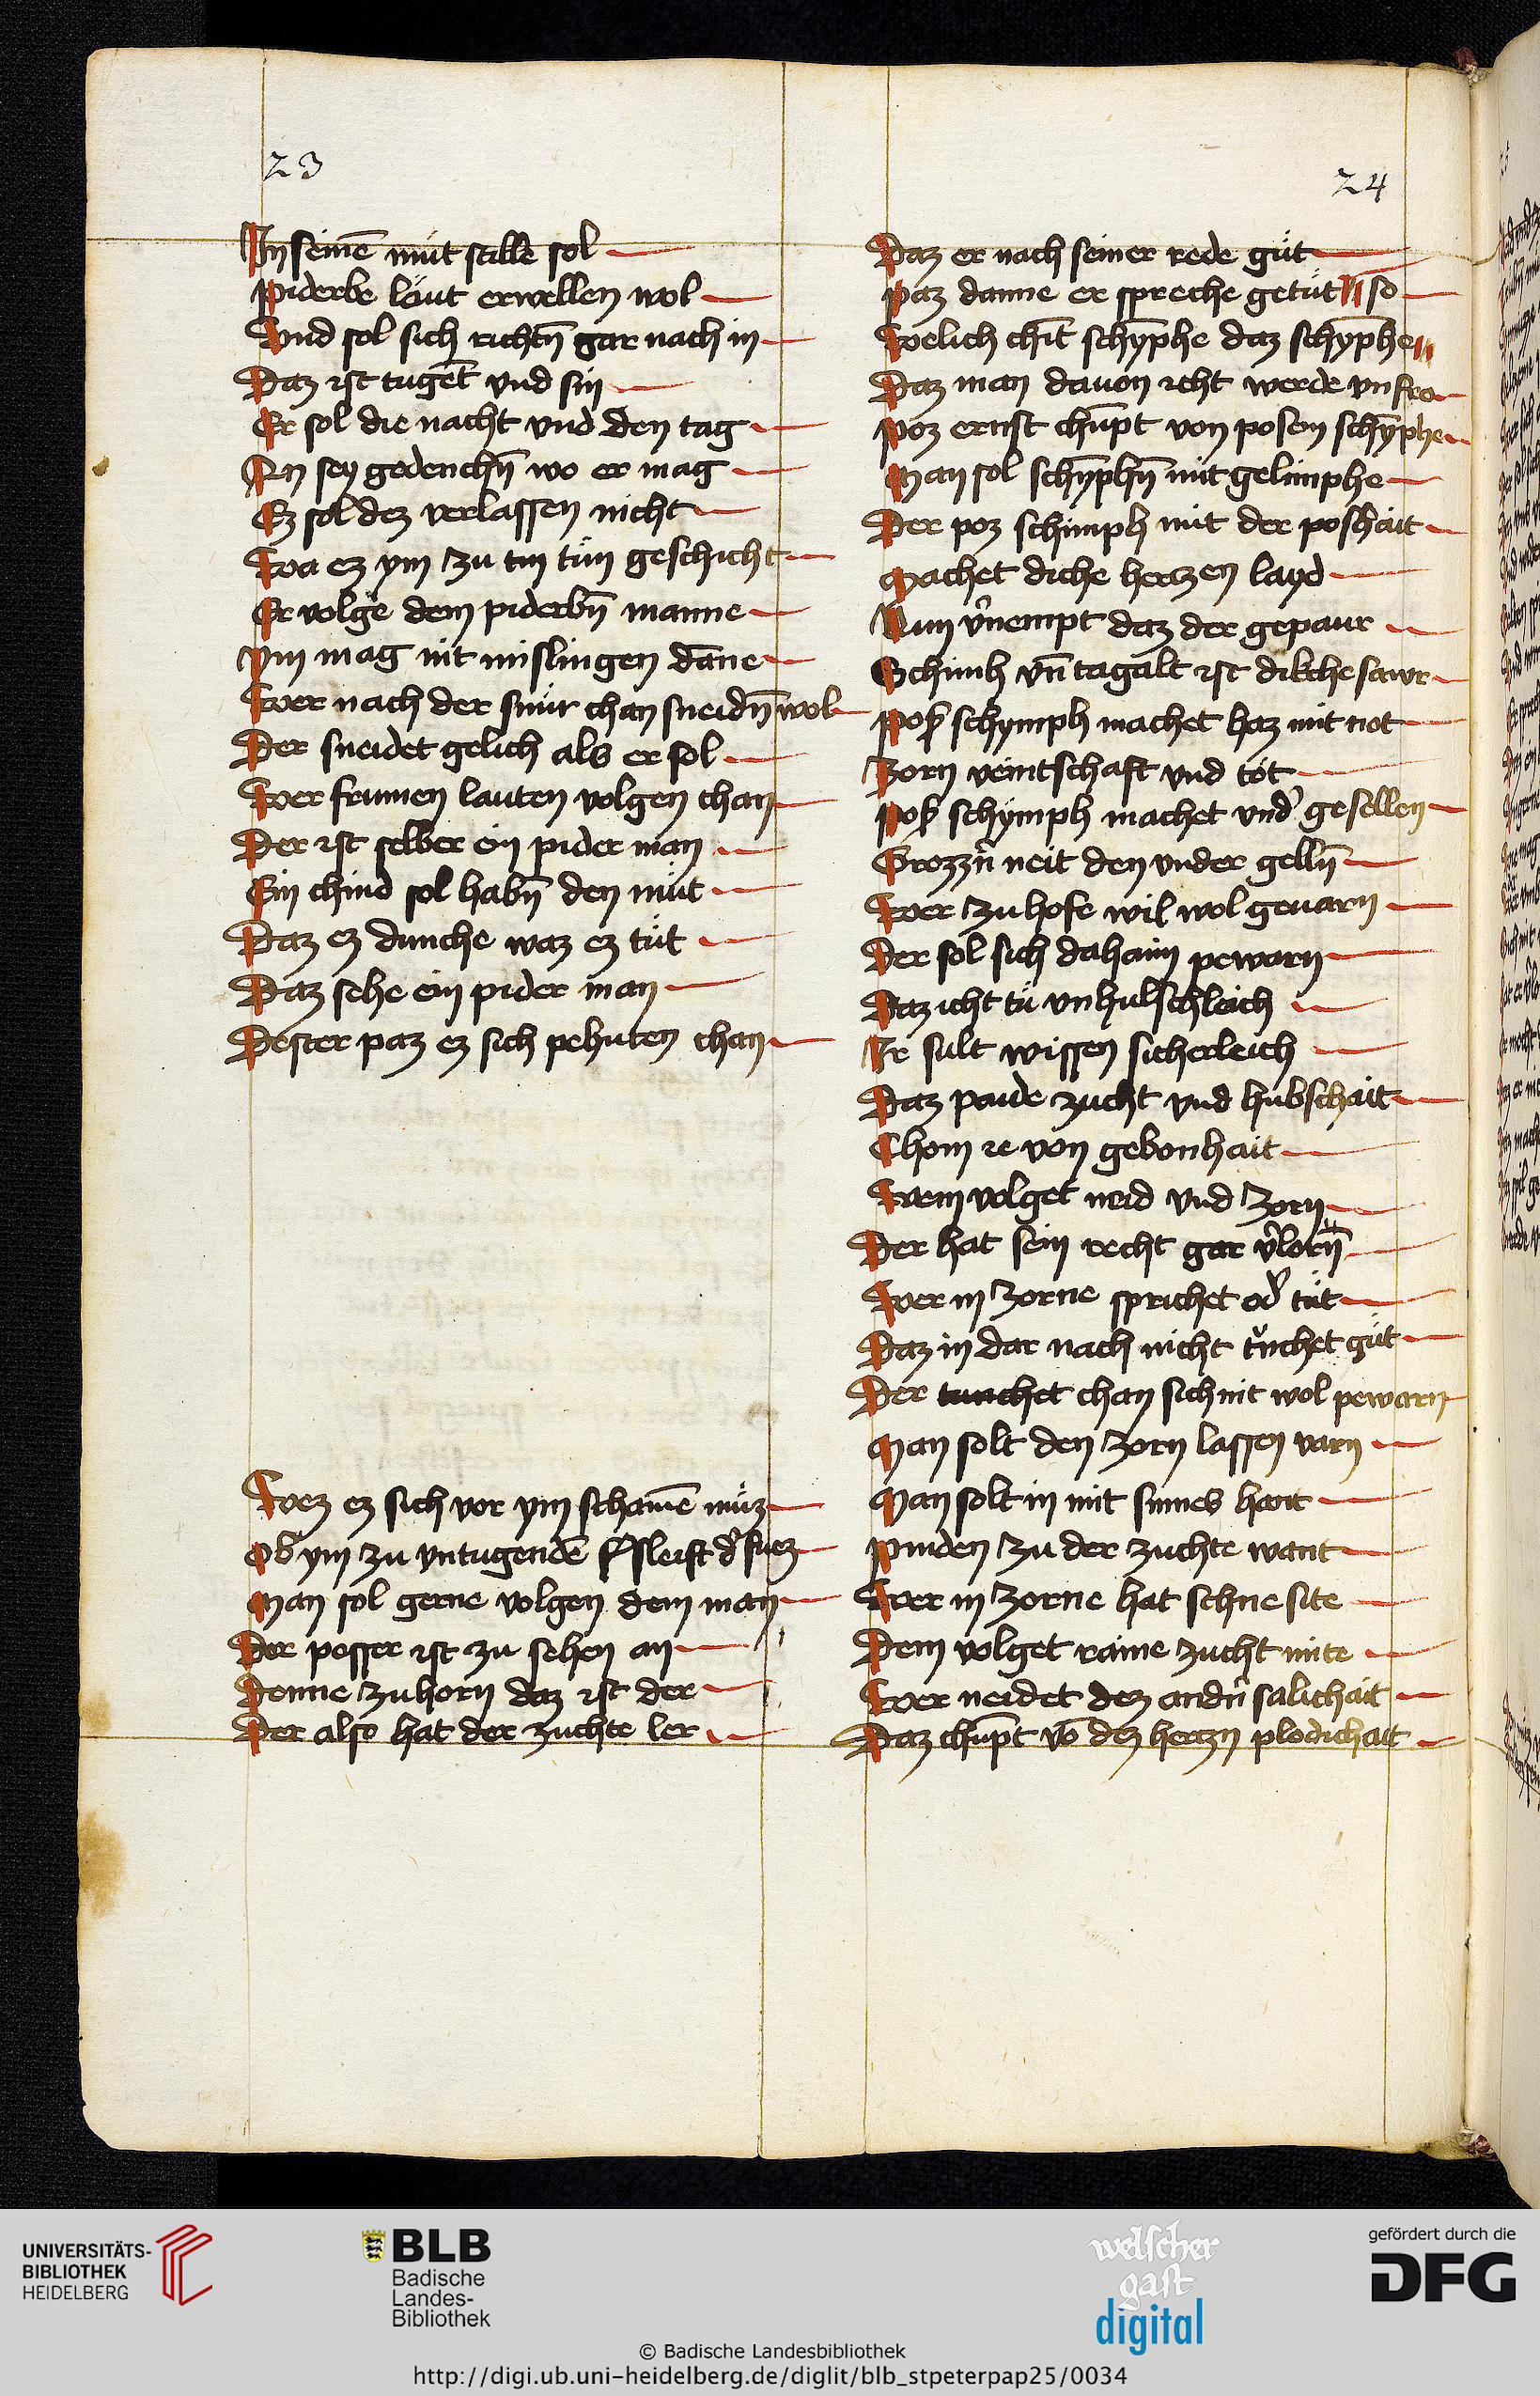 23
In seinē mut stille sol
Piderbe läut erwellen wol
Vnd sol sich richtn̄ gar nach in
Daz ist tugēt vnd sin
Er sol die nacht vnd den tag
An sey gedenchn̄ wo er mag
Ez sol dez verlassen nicht
Wa ez ym zu tun geschicht
Er volge dem piderbn̄ manne
Ym mag nit mislingen dāne
Wer nach der snür chan sneidn̄ wol
Der sneidet gelich als er sol
Wer frumen lauten volgen chan
Der ist selber ein pider man
Ein chind sol habn̄ den müt
Daz ez dunche waz ez tüt
Daz sehe ein pider man
Dester paz ez sich pehuten chan
Wez ez sich vor ym schamē müz
Ob ym zu vntugendē sleift d' fuez
Man sol gerne volgen dem man
Der pesser ist zu sehen an
Denne zuhorn daz ist der
Der also hat der zuchte ler
24
Daz er nach seiner rede güt
Paz danne er spreche getüt so
Welich chīt schȳphe daz schȳphe
Daz man dauon icht werde vnfro
Poz ernst chūpt von posem schȳphe
Man sol schȳphn̄ mit gelimphe
Der poz schimph mit der poshait
Machet diche hertzen layd
Nun v'nempt daz der gepaur
Schimh vn̄ tagalt ist dikche sawr
Pos' schymph machet haz mit not
Zorn veintschaft vnd tót
Pos' schymph machet vnd' gesellen
Grozzn̄ neit den vnder gelln̄
Wer zu hofe wil wol geuarn
Der sol sich dahaim pewarn
Daz icht tü vnhulschleich
Ir sult wissen sicherleich
Daz paide zucht vnd hubschait
Chom ie von gebonhait
Wem volget neid vnd zorn
Der hat sein recht gar v'lorn̄
Wer in zorne sprichet od' tüt
Daz in dar nach nicht tunchet güt
Der tunchet chan sich nit wol pewarn
Man solt den zorn lassen varn
Man solt in mit sinnes hant
Pinden zu der zuchte want
Wer in zorne hat schne site
Dem volget raine zucht mite
Wer neidet dez andn̄ salichait
Daz chūpt vō dez hertzn plodichait
UNIVERSITÄTS-
BIBLIOTHEK
HEIDELBERG
BLB
Badische
Landes-
Bibliothek
welscher
gast
digital
gefördert durch die
DFG
© Badische Landesbibliothek
http://digi.ub.uni-heidelberg.de/diglit/blb_stpeterpap25/0034